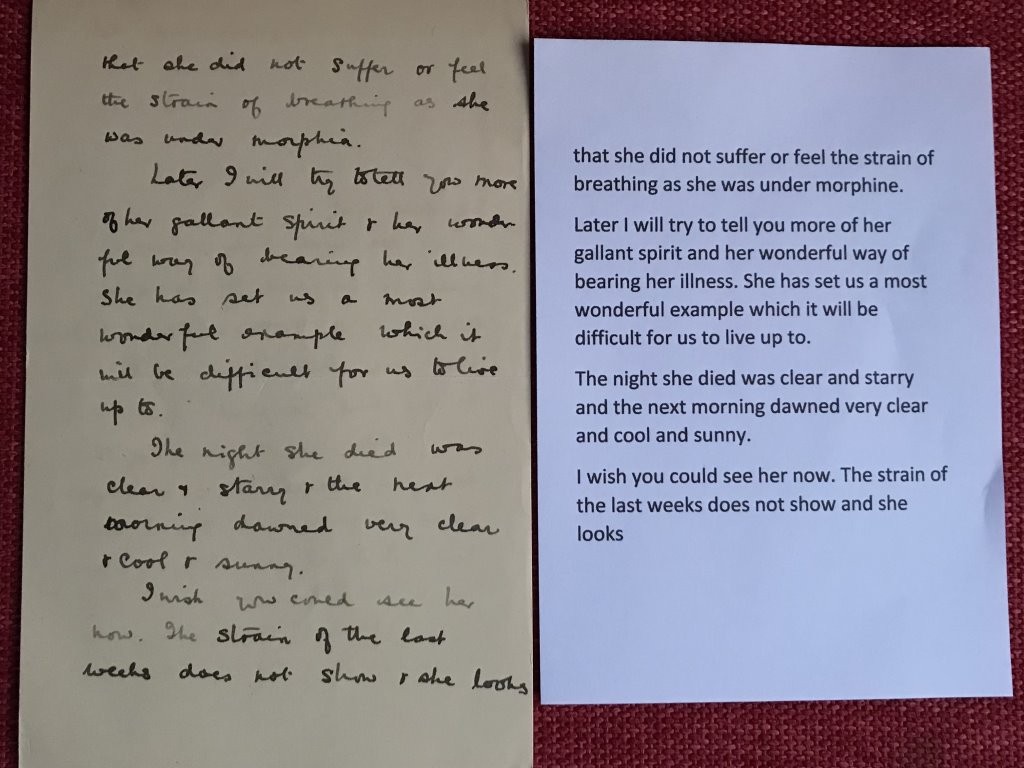 that she did not suffer or feel
the strain of breathing as she
was under morphia.
Later I will try to tell you more
of her gallant spirit & her wonder
ful way of bearing her illness.
She has set us a most
wonderful example which it
will be difficult for us to live
up to.
The night she died was
clear & starry & the next
morning dawned very clear
& cool & sunny.
I wish you could see her
now. The strain of the last
weeks does not show & she looks
that she did not suffer or feel the strain of
breathing as she was under morphine.
Later I will try to tell you more of her
gallant spirit and her wonderful way of
bearing her illness. She has set us a most
wonderful example which it will be
difficult for us to live up to.
The night she died was clear and starry
and the next morning dawned very clear
and cool and sunny.
I wish you could see her now. The strain of
the last weeks does not show and she
looks